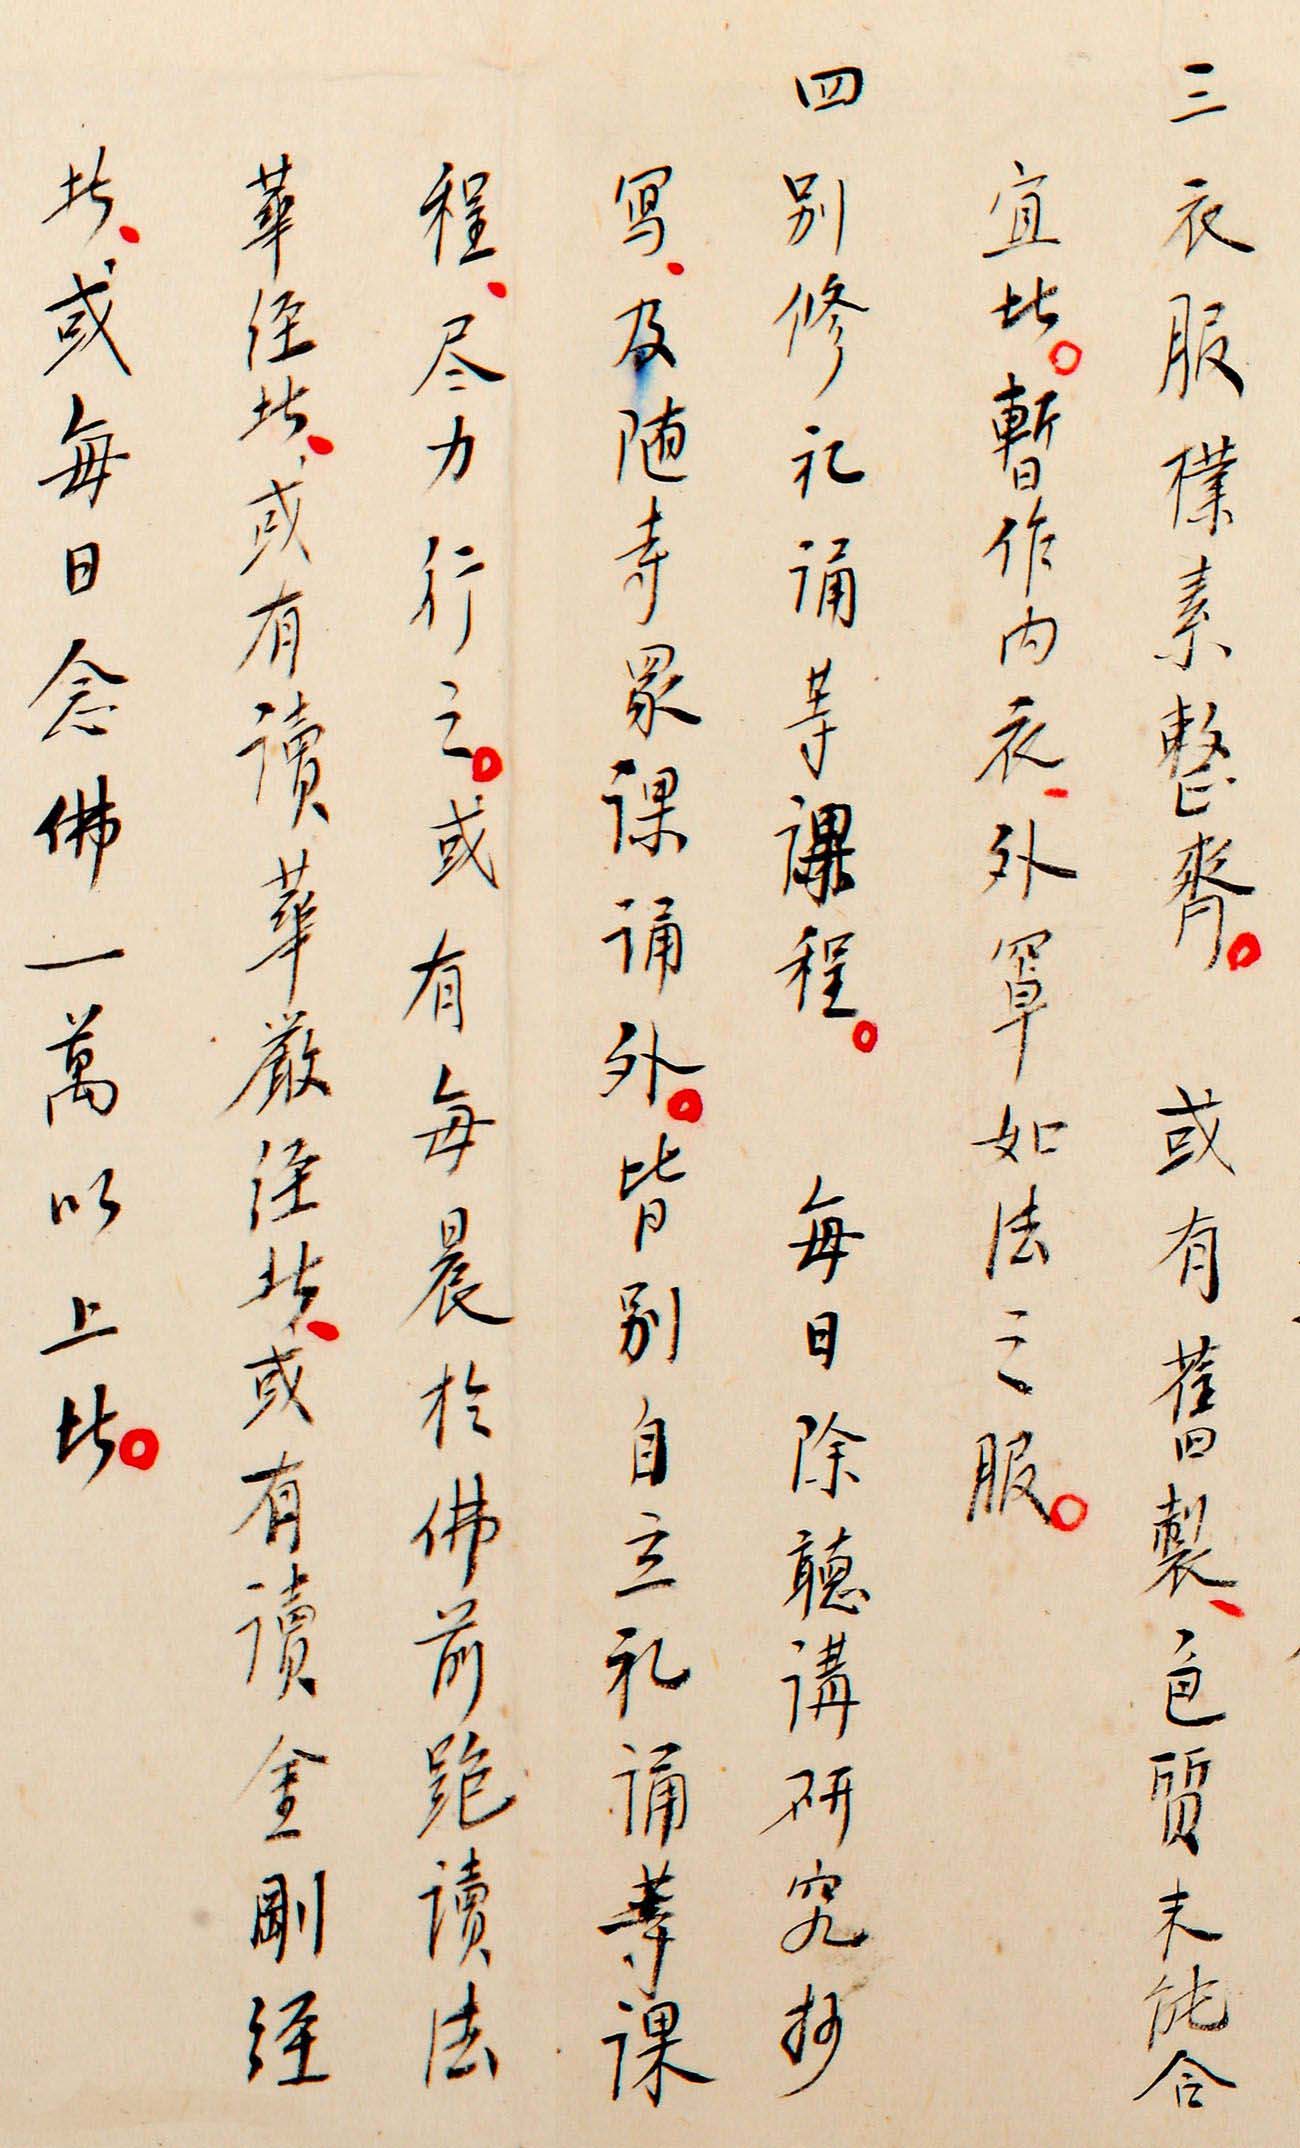 三衣服樸素整齊。 或有舊製、色質未能合
宜者。暫作內衣、外罩如法之服。
四別修礼誦等課程。 每日除聽講研究抄
寫、及随寺眾課誦外。皆別自立礼誦等課
程、尽力行之。或有每晨於佛前跪讀法
華经者、或有讀華嚴经者、或有讀金剛经
者、或每日念佛一萬以上者。